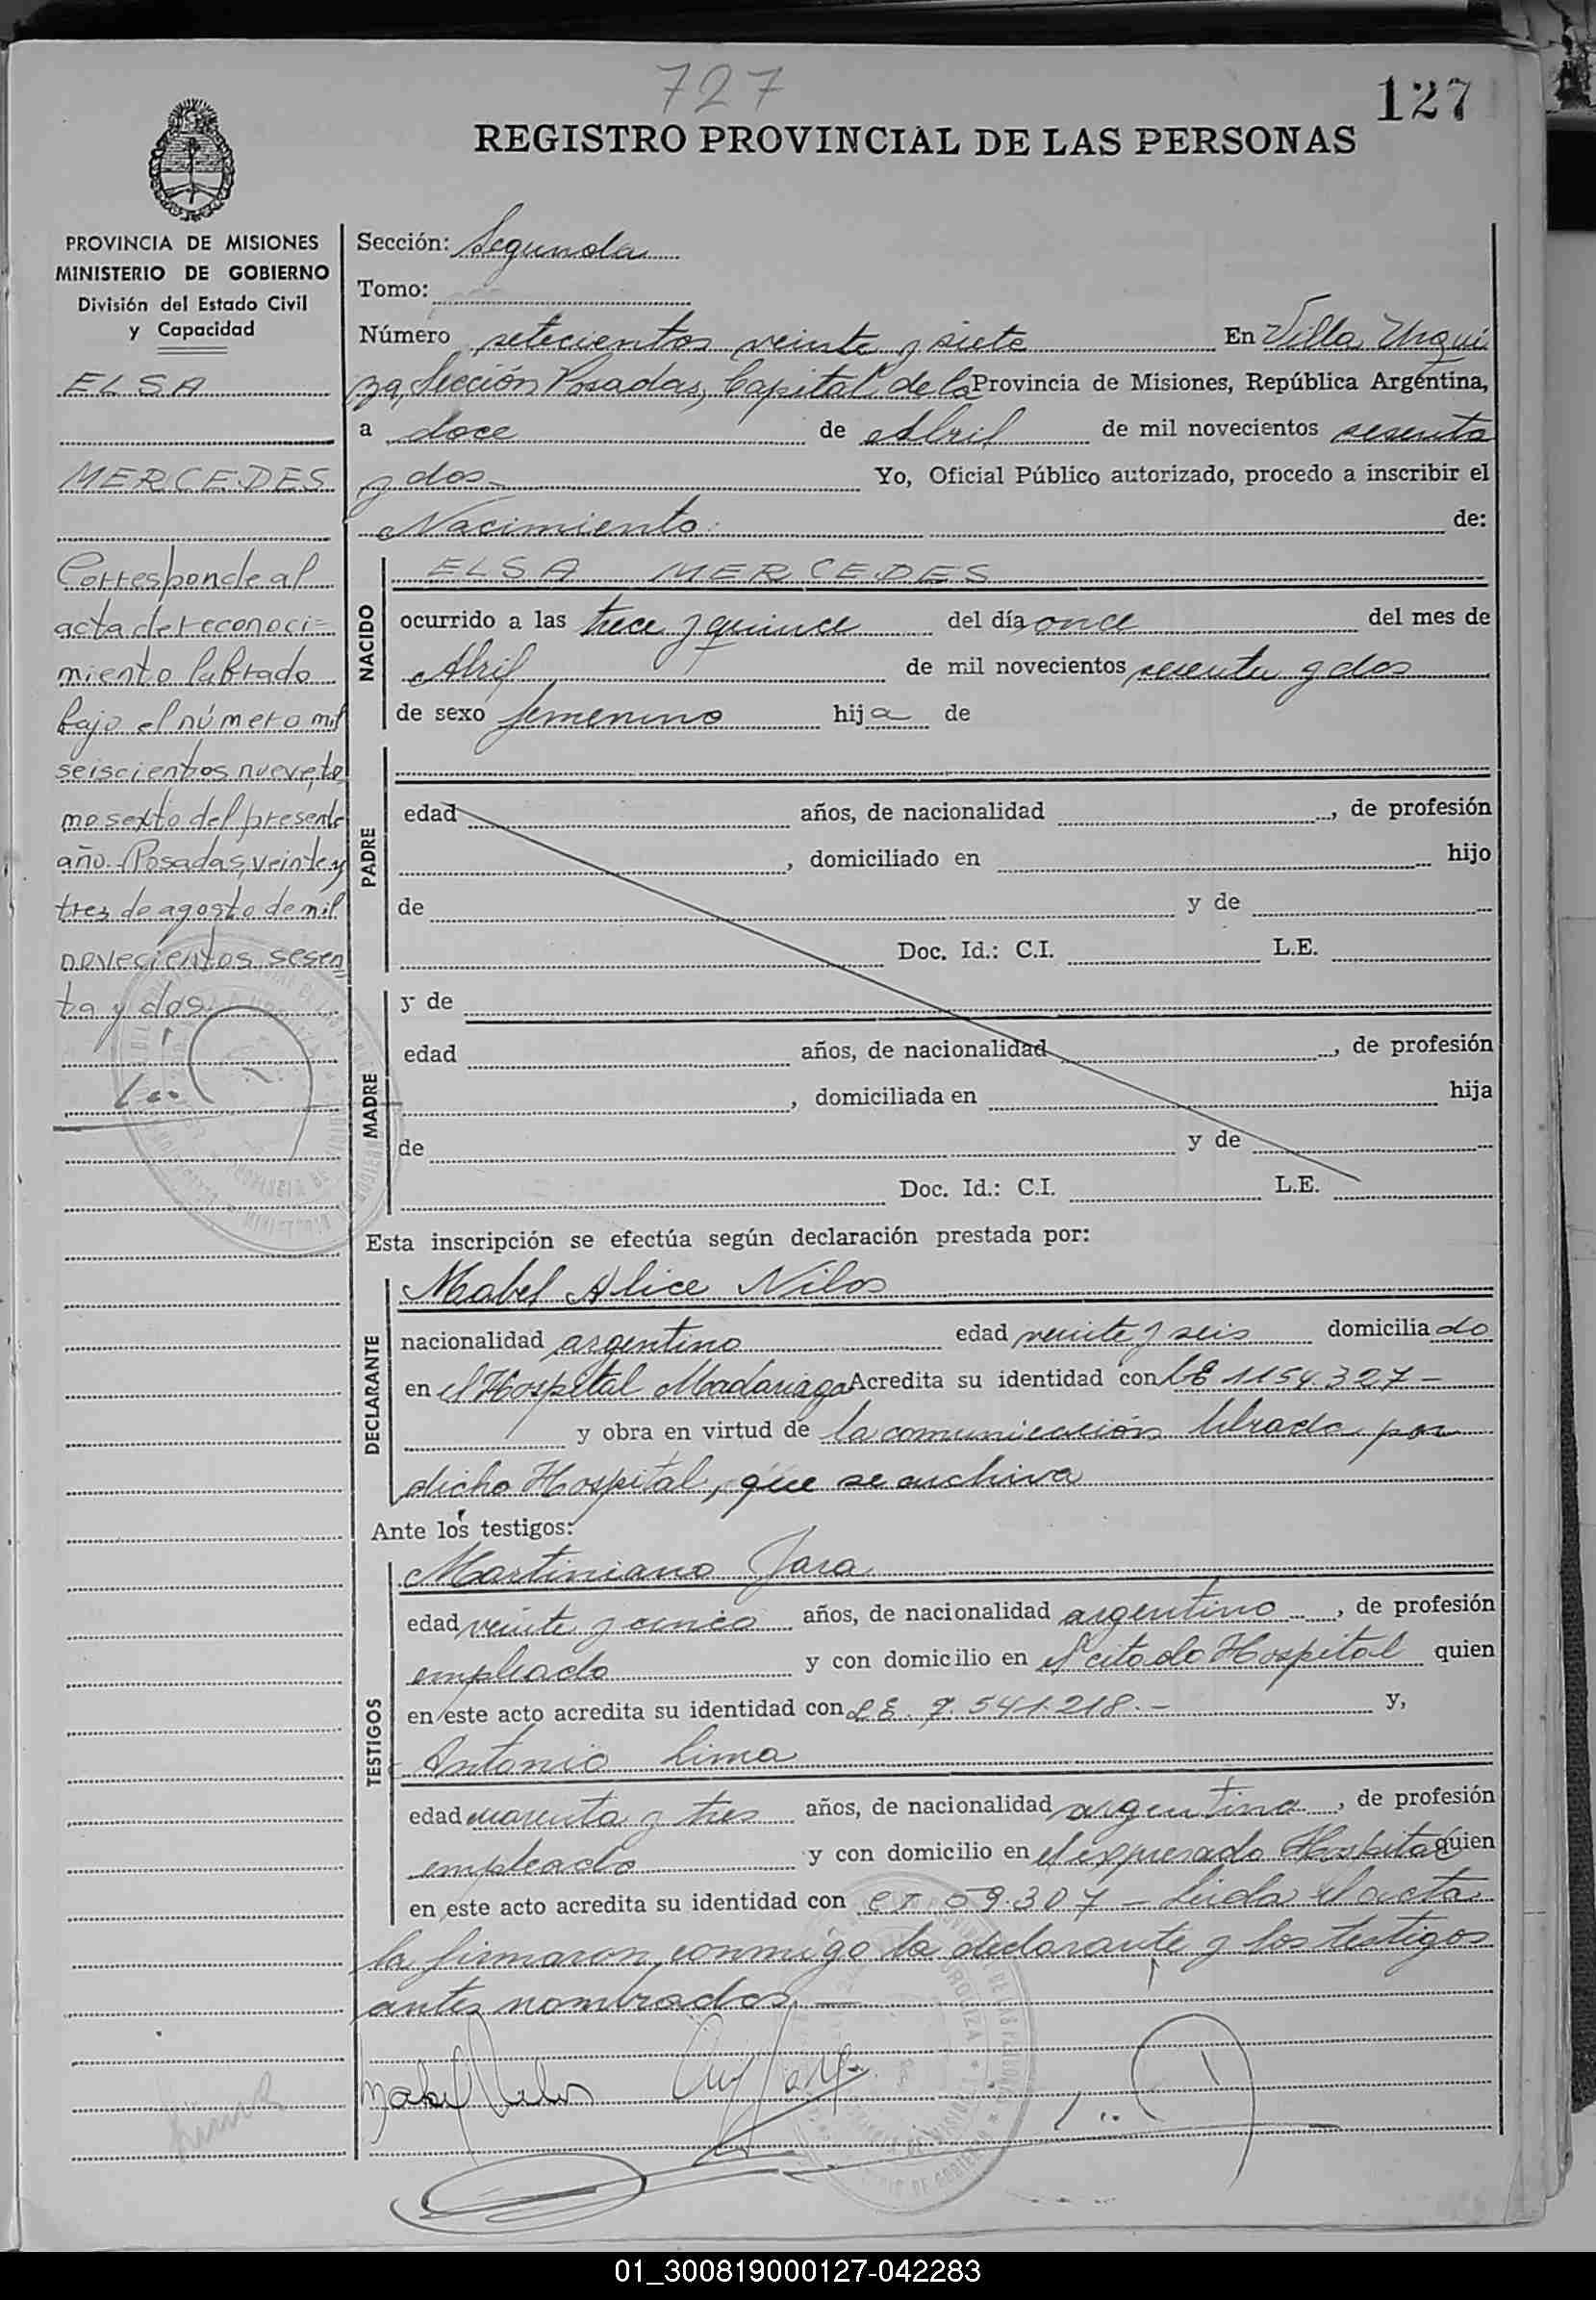 727
127
REGISTRO PROVINCIAL DE LAS PERSONAS
PROVINCIA DE MISIONES
MINISTERIO DE GOBIERNO
División del Estado Civil
y Capacidad
ELSA
MERCEDES
Corresponde al
acta de reconoci=
miento labrado
bajo el número mil
seiscientos nueve, to
mo sexto del presente
año. Posadas, veinte y
tres de agosto de mil
novecientos sesen
ta y dos.
Sección: Segunda
Tomo:
Número setecientos veinte y siete En Villa Urqui
za, Sección Posadas, Capital de la Provincia de Misiones, República Argentina,
a doce de Abril de mil novecientos sesenta
y dos Yo, Oficial Público autorizado, procedo a inscribir el
Nacimiento de:
NACIDO
ELSA MERCEDES
ocurrido a las trece y quince del día once del mes de
Abril de mil novecientos sesenta y dos
de sexo femenino hija de
PADRE
edad años, de nacionalidad , de profesión
, domiciliado en hijo
de y de
Doc. Id.: C.I. L.E.
MADRE
y de
edad años, de nacionalidad , de profesión
, domiciliada en hija
de y de
Doc. Id.: C.I. L.E.
Esta inscripción se efectúa según declaración prestada por:
DECLARANTE
Mabel Alice Nilos
nacionalidad argentino edad veinte y seis domiciliado
en el Hospital Madariaga Acredita su identidad con LE 1154.327-
y obra en virtud de la comunicación librada por
dicho Hospital, que se archiva
Ante los testigos:
TESTIGOS
Martiniano Jara
edad veinte y cinco años, de nacionalidad argentino, de profesión
empleado y con domicilio en el citado Hospital quien
en este acto acredita su identidad con LE. 7.541.218.- y,
Antonio Lima
edad cuarenta y tres años, de nacionalidad argentino, de profesión
empleado y con domicilio en el expresado Hospital quien
en este acto acredita su identidad con 59.307 - Leida el acta
la firmaron conmigo la declarante y los testigos
antes nombrados. —
01_300819000127-042283